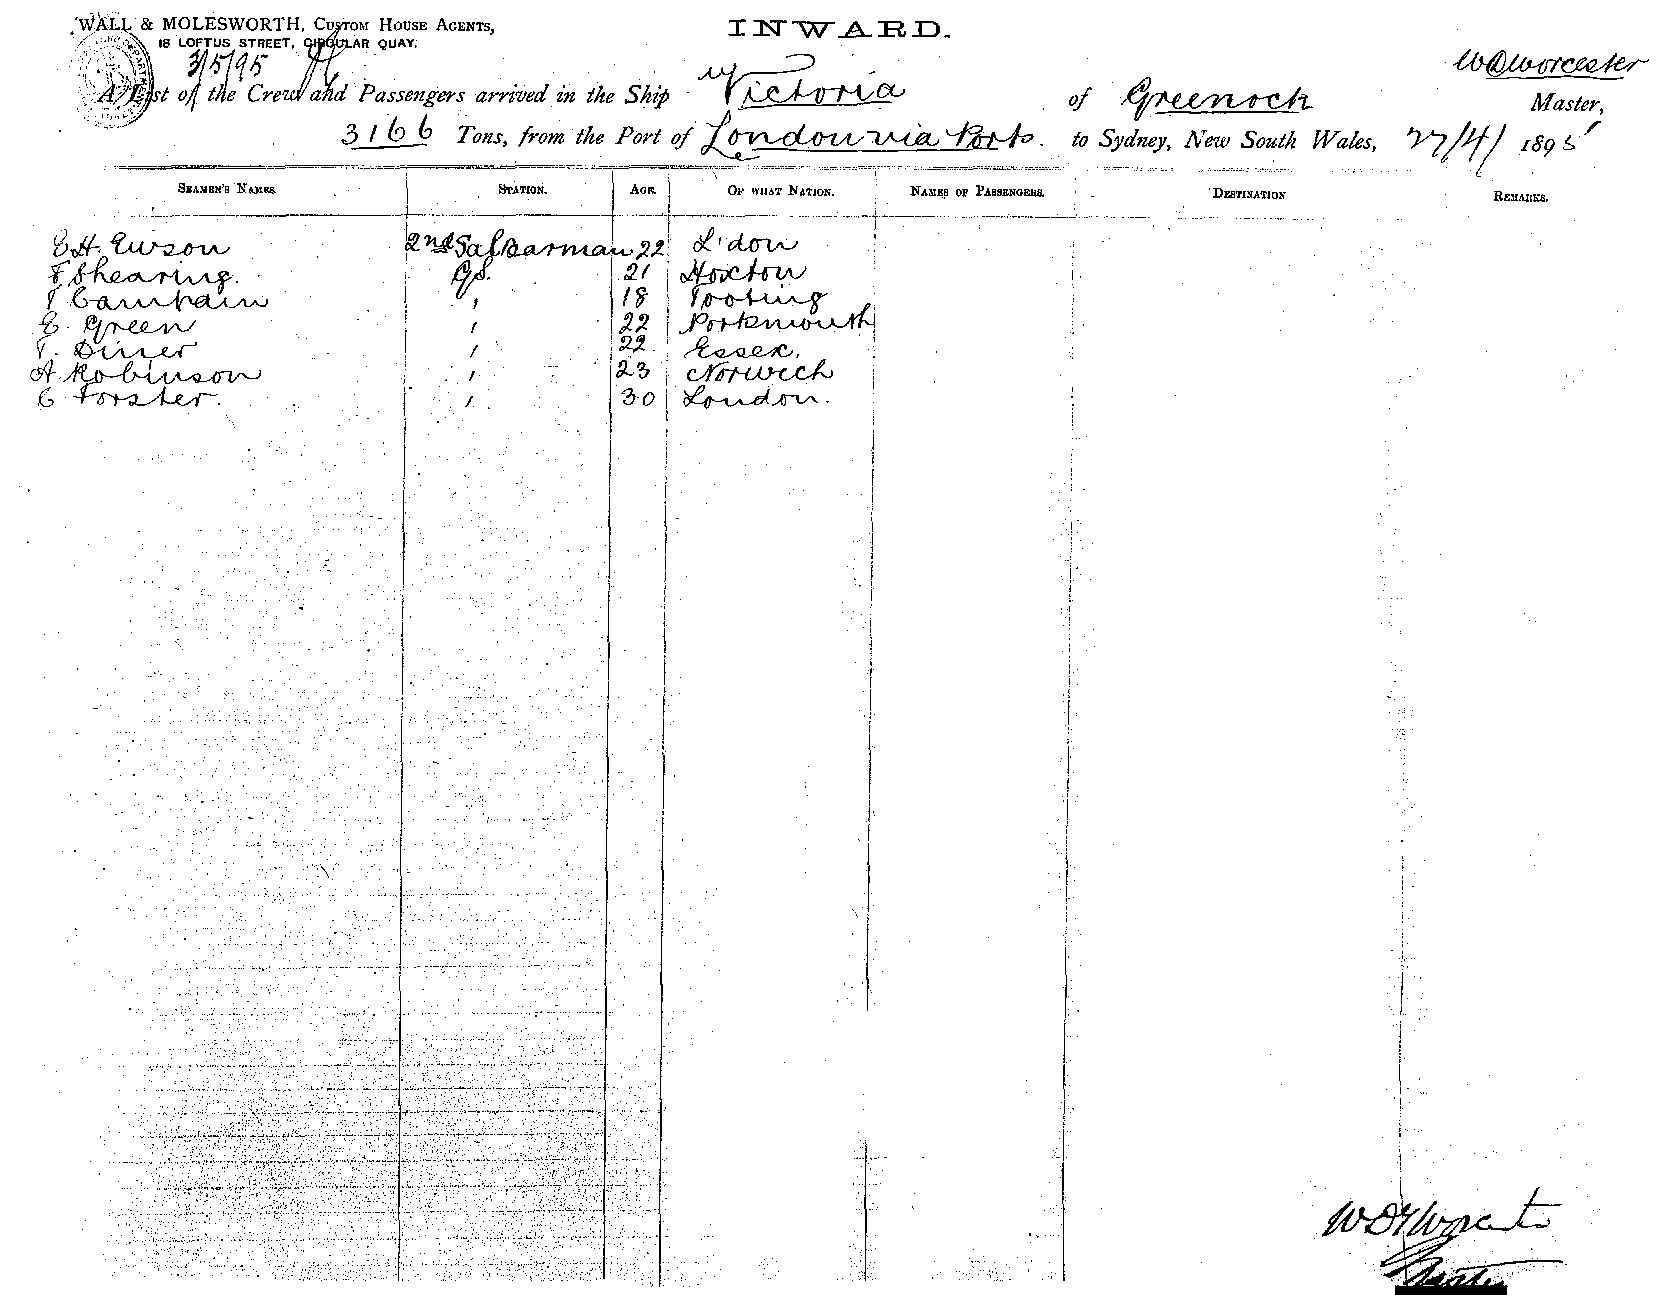 WALL & MOLESWORTH, CUSTOM HOUSE AGENTS,
18 LOFTUS STREET, CIRCULAR QUAY.
3/5/95
INWARD.
WD Worcester
A List of the Crew and Passengers arrived in the Ship Victoria of Greenock Master,
3166 Tons, from the Port of London via Ports. to Sydney, New South Wales, 27/4/ 1895
SEAMEN'S NAMES. STATION. AGE. OF WHAT NATION. NAMES OF PASSENGERS. DESTINATION REMARKS.
E H. Ewson 2nd Sal Barman 22 L'don
F Shearing. GS. 21 Hoxton
T Camhain " 18 Tooting
E. Green " 22 Portsmouth
T. Diner " 22 Essex.
A Robinson " 23 Norwich
C Forster. " 30 London.
Master